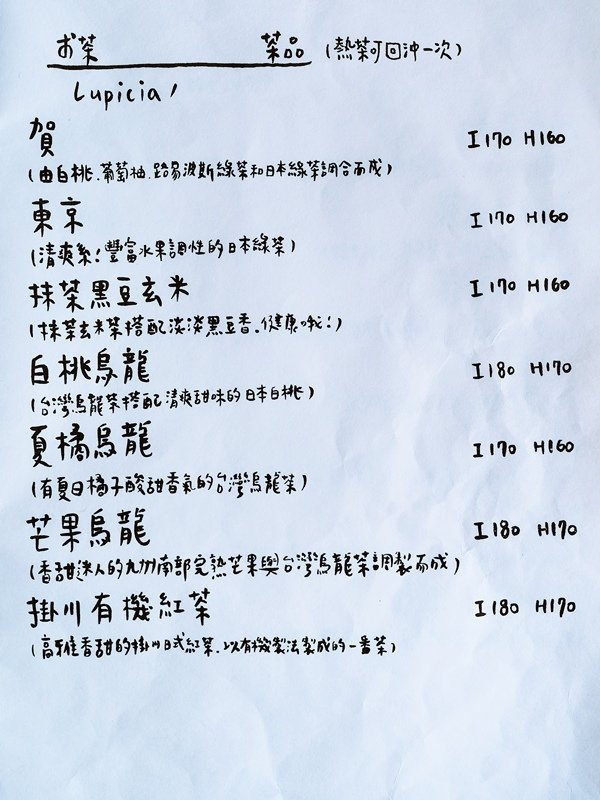 お茶 茶品 (熱茶可回沖一次)
Lupicia!
賀 I170 H160
(由白桃.葡萄柚.路易波斯綠茶和日本綠茶調合而成)
東京 I170 H160
(清爽系!豐富水果調性的日本綠茶)
抹茶黑豆玄米 I170 H160
(抹茶玄米茶搭配淡淡黑豆香。健康哦!)
白桃烏龍 I180 H170
(台灣烏龍茶搭配清爽甜味的日本白桃)
夏橘烏龍 I170 H160
(有夏日橘子酸甜香氣的台灣烏龍茶)
芒果烏龍 I180 H170
(香甜迷人的九州南部完熟芒果與台灣烏龍茶調製而成)
掛川有機紅茶 I180 H170
(高雅香甜的掛川日式紅茶.以有機製法製成的一番茶)